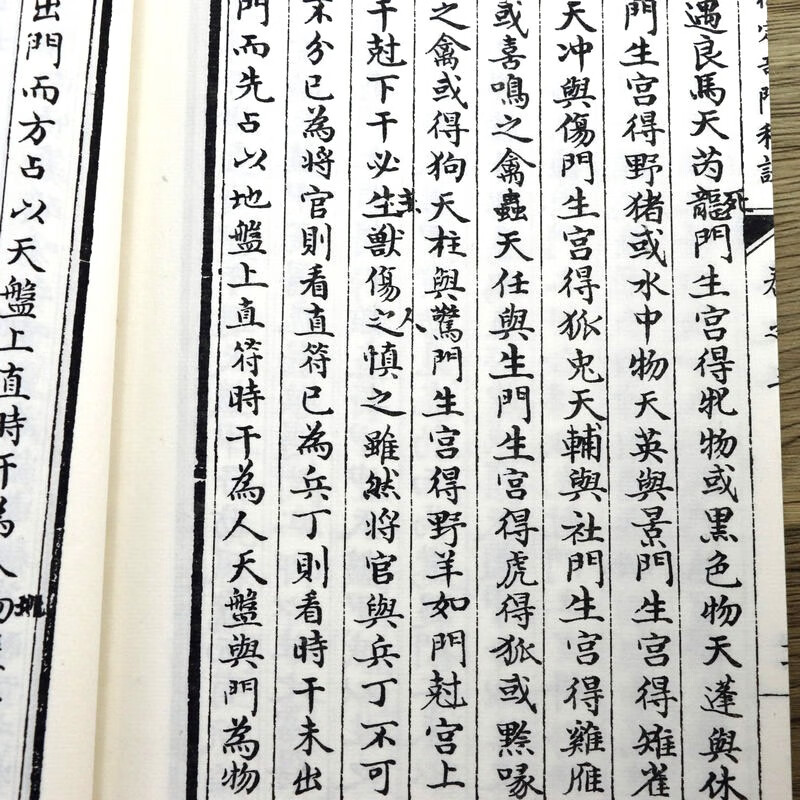 遇良馬天芮龍門生宮得牝物或黑色物天蓬與休
死
門生宮得野猪或水中物天英與景門生宮得雉雀
天冲與傷門生宮得狐兎天輔與社門生宮得雞雁
或喜鳴之禽蟲天任與生門生宮得虎得狐或黥喙
之禽或得狗天柱與驚門生宮得野羊如門尅宮上
干尅下干必生獸傷之慎之雖然將官與兵丁不可
人
不分已為將官則看直符已為兵丁則看時干未出
門而先占以地盤上直符時干為人天盤與門為物
出門而方占以天盤上直時干為人